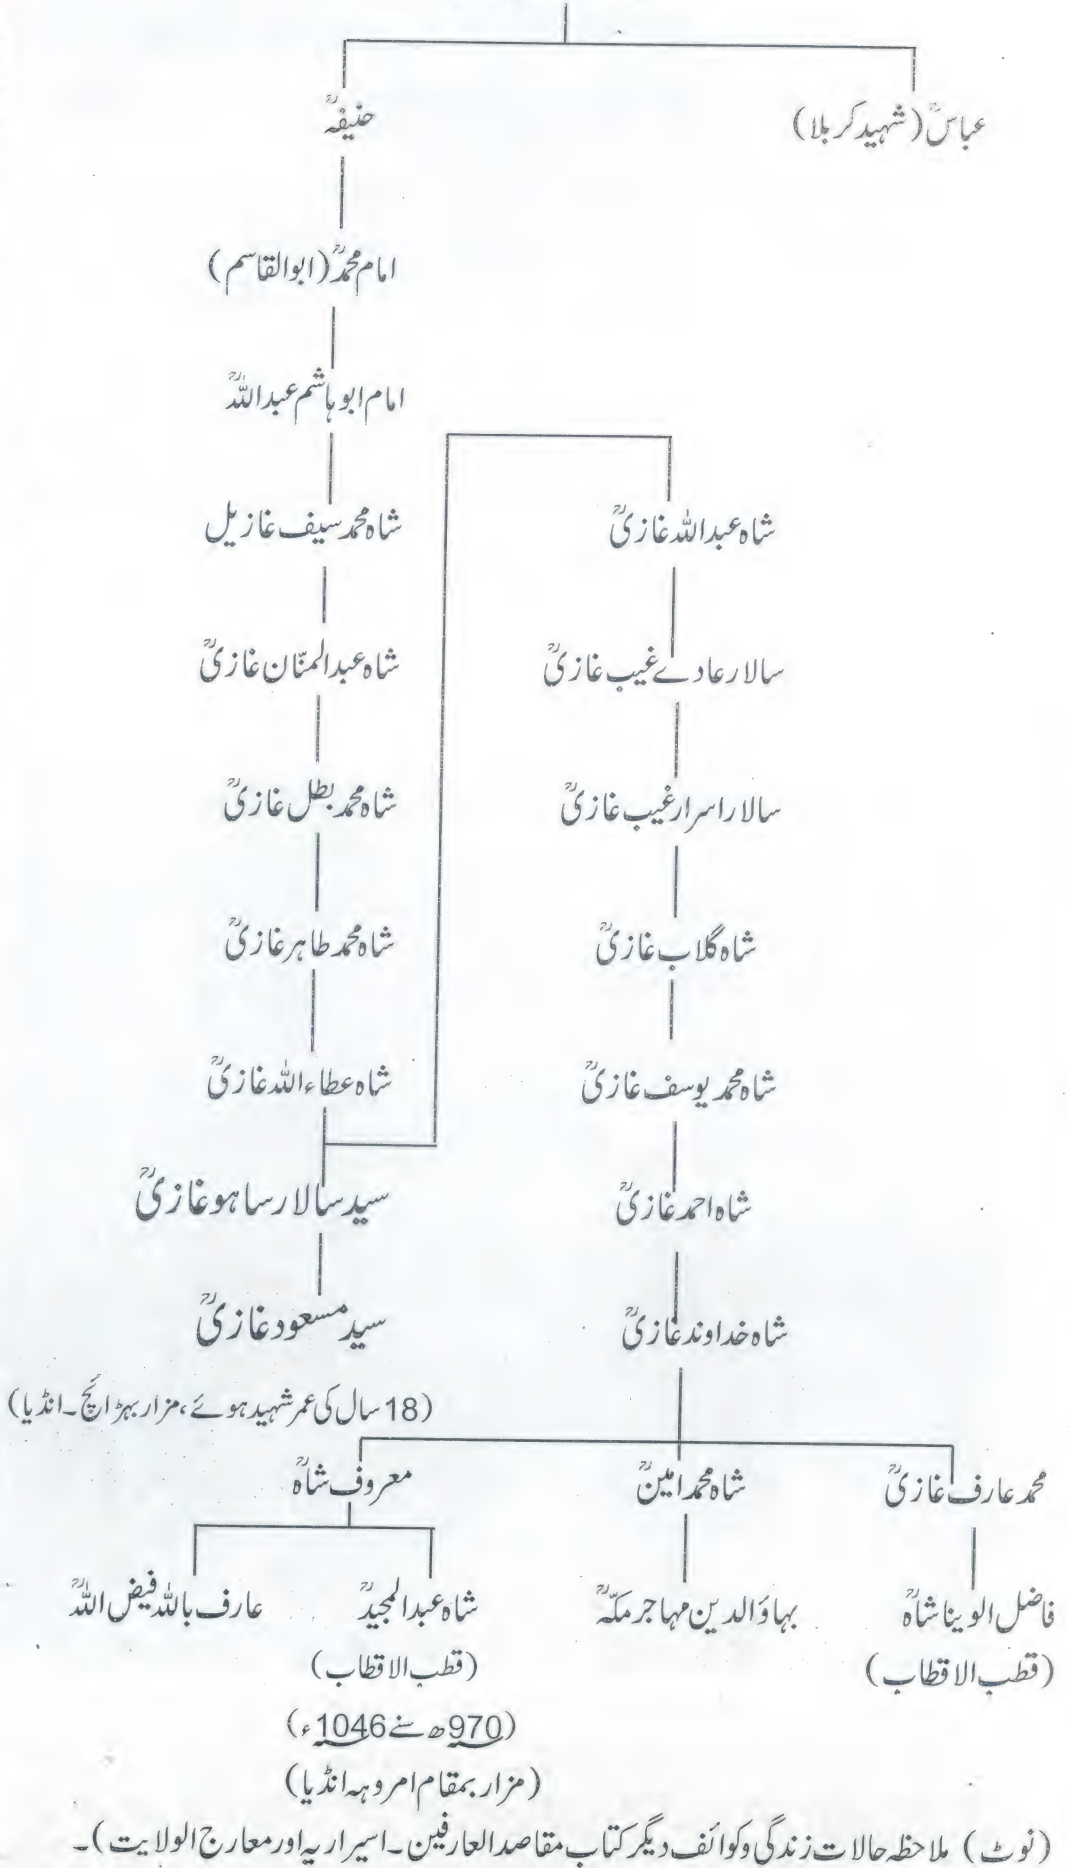 عباسؒ (شہید کربلا)
حنیفہؒ
امام محمدؒ (ابوالقاسم)
امام ابو ہاشم عبداللہؒ
شاہ محمد سیف غازیل
شاہ عبدالمنّان غازیؒ
شاہ محمد بطل غازیؒ
شاہ محمد طاہر غازیؒ
شاہ عطاء اللہ غازیؒ
سید سالار ساہو غازیؒ
سید مسعود غازیؒ
(18 سال کی عمر شہید ہوئے، مزار بہڑائچ۔ انڈیا)
شاہ عبداللہ غازیؒ
سالار عادے غیب غازیؒ
سالار اسرار غیب غازیؒ
شاہ گلاب غازیؒ
شاہ محمد یوسف غازیؒ
شاہ احمد غازیؒ
شاہ خداوند غازیؒ
محمد عارف غازیؒ
شاہ محمد امینؒ
معروف شاہؒ
فاضل الوینا شاہؒ
(قطب الاقطاب)
بہاؤالدین مہاجر مکہؒ
شاہ عبدالمجیدؒ
(قطب الاقطاب)
(970ھ سنے 1046ء)
(مزار بمقام امروہہ انڈیا)
عارف باللہ فیض اللہؒ
(نوٹ) ملاحظہ حالات زندگی و کوائف دیگر کتاب مقاصد العارفین۔ اسیراریہ اور معارج الولایت)۔